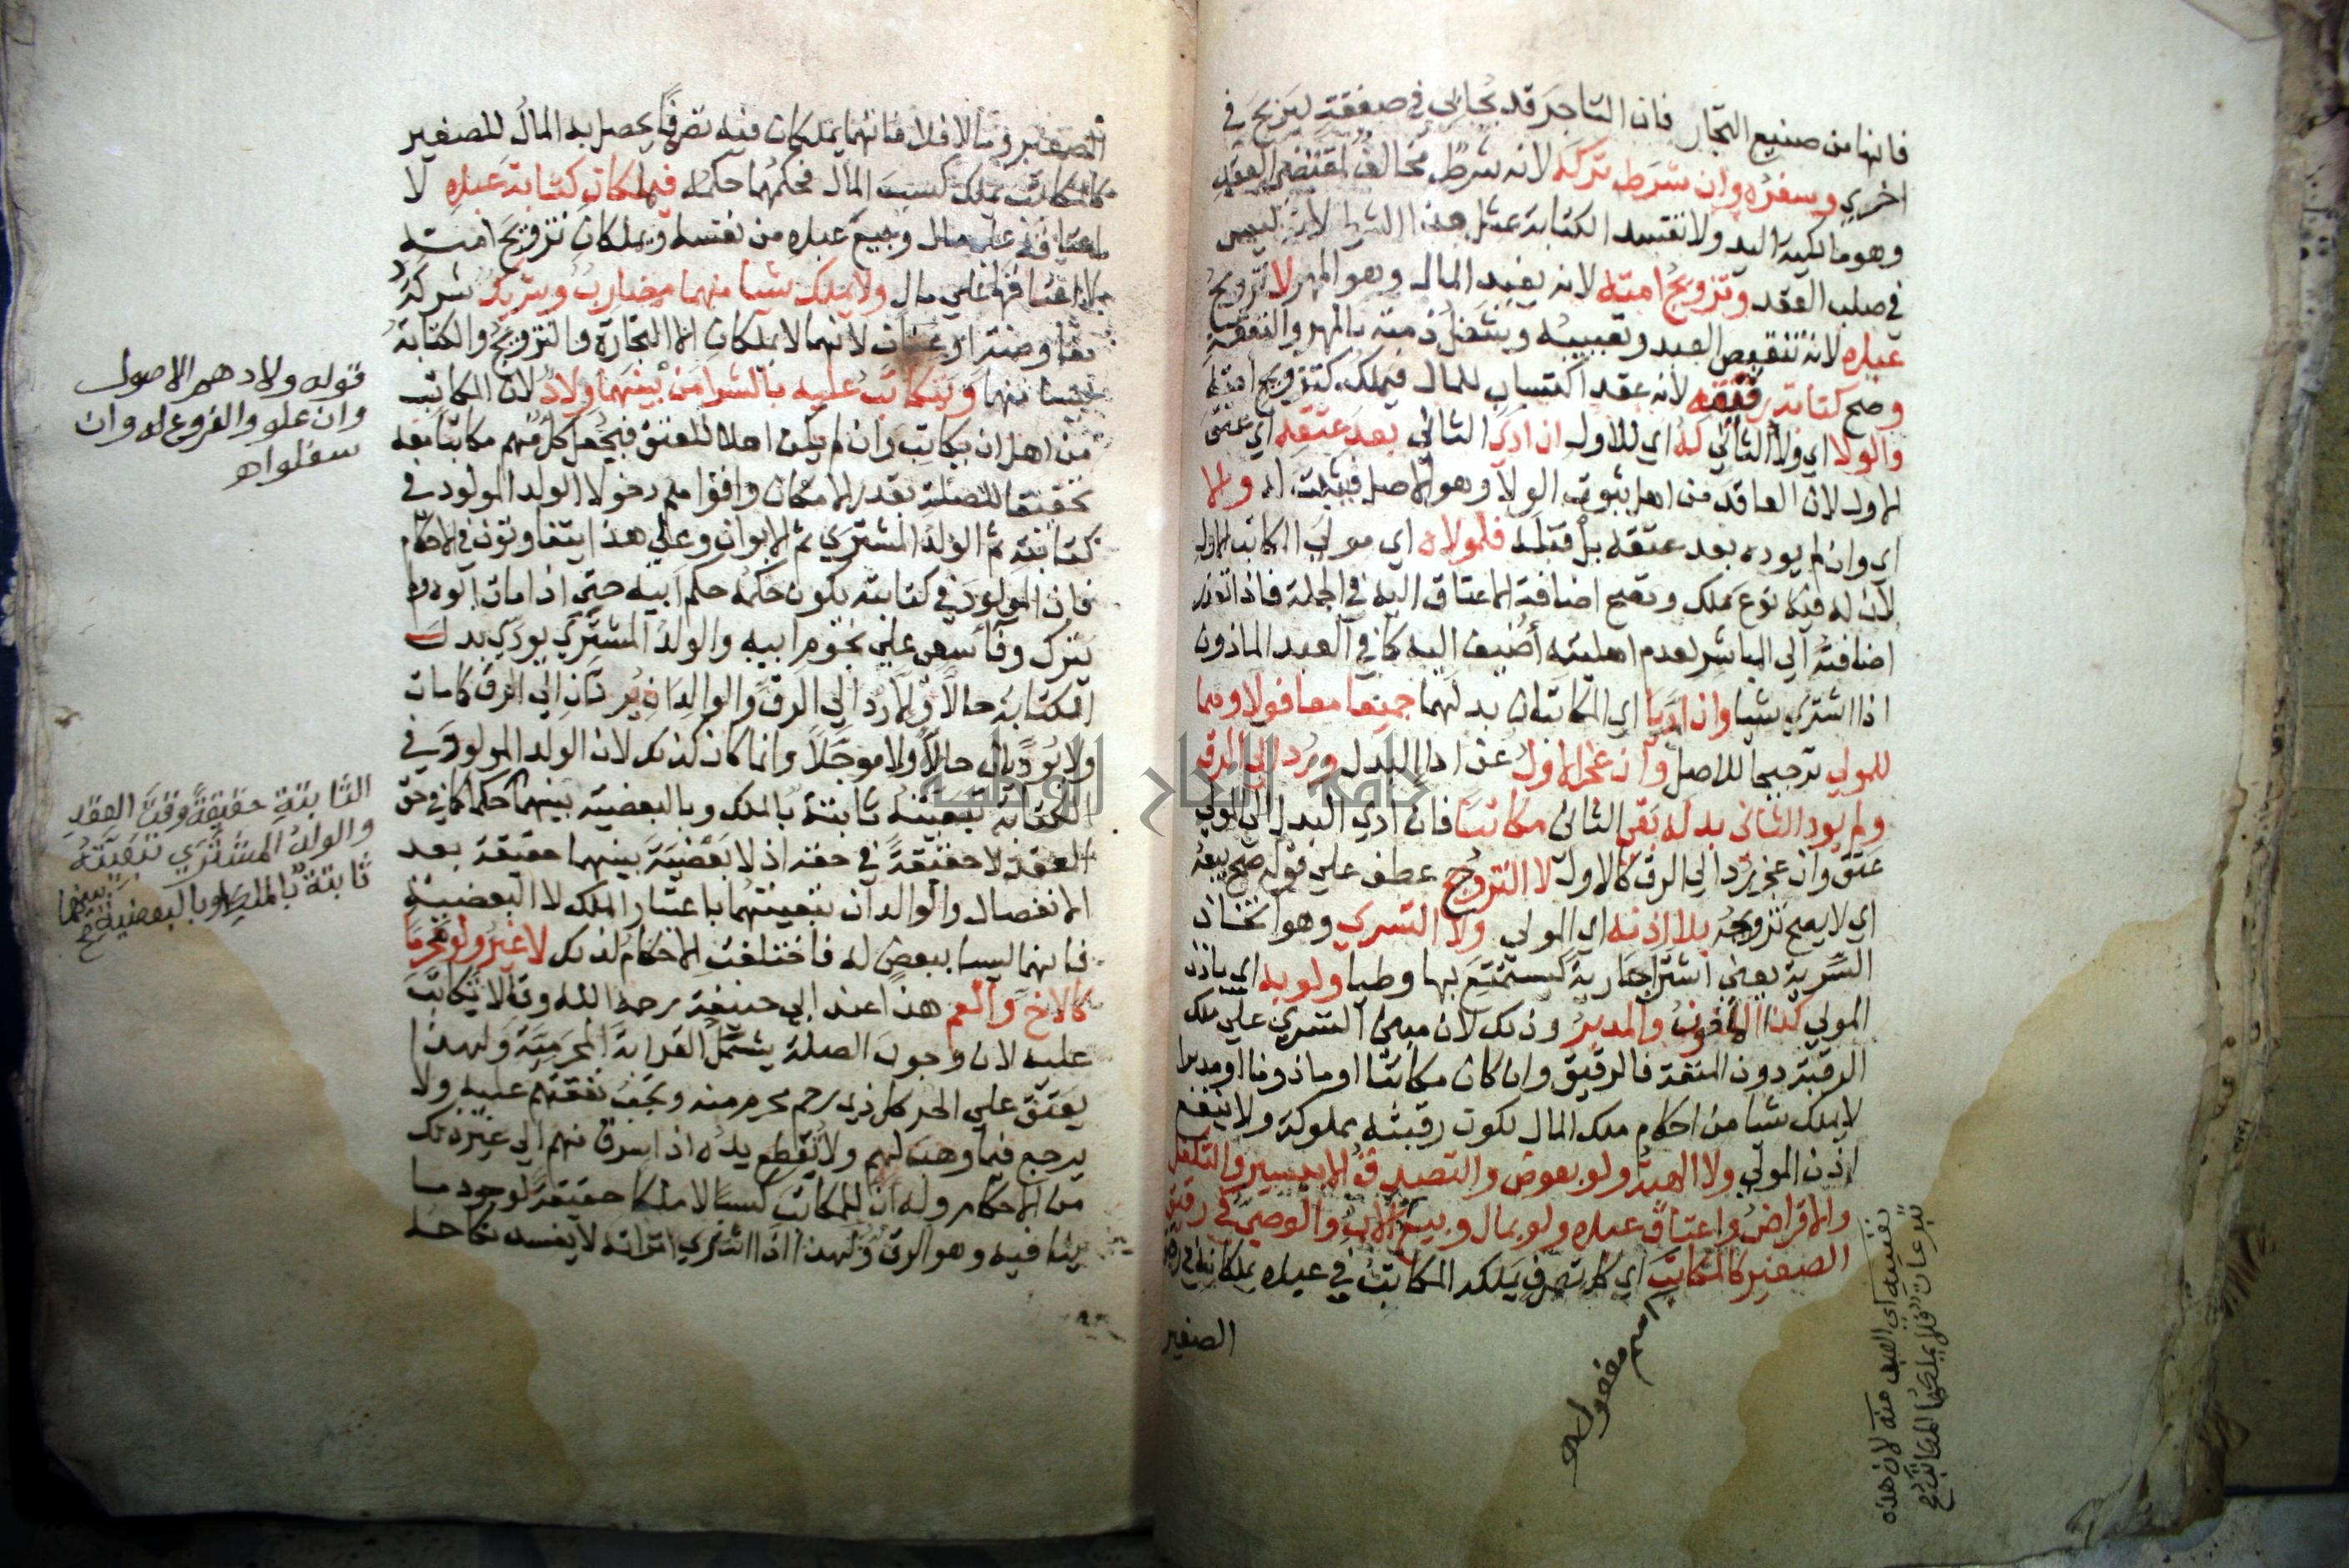 فانها من صنيع التجار فان التاجر قد يحابي في صفقة ليربح في
اخري وسفره وان شرط تركه لانه شرط مخالف لمقتضي العقد
وهو مالكية اليد ولا تفسد الكتابة بمثل هذا الشرط لانه ليس
في صلب العقد وتزويج امته لانه يفيد المال وهو المهر لا تزويج
عبده لانه تنقيص العبد وتعييبه وشغل ذمته بالمهر والنفقة
وصح كتابة رقيقه لانه عقد اكتساب للمال فيملك كتزويج امته
والولا اي ولا الثاني له اي للاول ان ادي الثاني بعد عتقه اي عتق
الاول لان العاقد من اهل ثبوت الولا وهو الاصل فيثبت له والا
اي وان لم يوده بعد عتقه بل قبله فلمولاه اي مولي المكاتب الاول
لان له فيه نوع ملك وتصح اضافة الاعتاق اليه في الجملة فاذا تعذر
اضافته الي المباشر لعدم اهليته أضيف اليه كما في العبد الماذون
اذا اشتري شيا وان اديا اي المكاتبان بدلهما جميعا معا فولاوهما
للمولي ترجيحا للاصل وان عجز الاول عن ادا البدل ورد الي الرق
ولم يود الثاني بدله بقي الثاني مكاتبا فان ادي البدل الي المولي
عتق وان عجز رد الي الرق كالاول لا التزوج عطف علي قوله صح بيعه
اي لا يصح تزوجه بلا اذنه اي المولي ولا التسري وهو اتخاذ
السرية يعني اشتري جارية ليستمتع بها وطيا ولو به اي باذن
المولي كذا الماذون والمدبر وذلك لان مبني التسري علي ملك
الرقبة دون المتعة فالرقيق وان كان مكاتبا او ماذونا او مدبرا
لا يملك شيا من احكام ملك المال لكون رقبته مملوكة ولا ينفع
اذن المولي ولا الهبة ولو بعوض والتصدق الا بيسير والتكفل
والاقراض واعتاق عبده ولو بمال وبيع الاب والوصي في رقيق
الصغير كالمكاتب اي كل تصرف يملكه المكاتب في عبده يملكانه في رقيق
الصغير
نفسه اي العبد منه لان هذه
تبرعان فلا يملكها المكاتب صح
الصغير وما لا فلا فانهما يملكان فيه تصرفا يحصل به المال للصغير
كالمكاتب يملك كسب المال فحكمهما حكمه فيملكان كتابة عبده لا
اعتاقه علي مال وبيع عبده من نفسه ويملكان تزويج امته
لا اعتاقها علي مال ولا يملك شيا منهما مضارب وشريك شركة
مفاوضة او عنان لانهما لا يملكان الا التجارة والتزويج والكتابة
ليسا منها ويتكاتب عليه بالشرا من بينهما ولاد لان المكاتب
من اهل ان يكاتب وان لم يكن اهلا للعتق فيجعل كل منهم مكاتبا معه
تحقيقا للصلة بقدر الامكان واقواهم دخولا الولد المولود في
كتابته ثم الولد المشتري ثم الابوان وعلي هذا يتفاوتون في الاحكام
فان المولود في كتابته يكون حكمه حكم ابيه حتي اذا مات ابوه ولم
يترك وفا سعي علي نجوم ابيه والولد المشتري يودي بدل
الكتابة حالا والا رد الي الرق والوالدان يردان الي الرق كما مات
ولا يوديان حالا ولا موجلا وانما كان كذلك لان الولد المولود في
الكتابة تبعيته ثابتة بالملك وبالبعضية بينهما حكما كما في حق
العقد لا حقيقة في حقه اذ لا بعضية بينهما حقيقة بعد
الانفصال والوالدان تبعيتهما باعتبار الملك لا البعضية
فانهما ليسا ببعض له فاختلفت الاحكام لذلك لا غير ولو محرما
كالاخ والعم هذا عند ابي حنيفة رحمه الله وقالا يتكاتب
عليه لان وجوب الصلة يشمل القرابة المحرمية ولهذا
يعتق علي الحر كل ذي رحم محرم منه وتجب نفقتهم عليه ولا
يرجع فيما وهب لهم ولا تقطع يده اذا سرق منهم الي غير ذلك
من الاحكام وله ان للمكاتب كسبا لا ملكا حقيقة لوجود ما
ينافيه وهو الرق ولهذا اذا اشتري امراته لا يفسد نكاحه
قوله ولاد هم الاصول
وان علو والفروع له وان
سفلوا اه
الثابتة حقيقة وقت العقد
والولد المشتري تبعيته
ثابتة بالملك وبالبعضية بينهما
صح